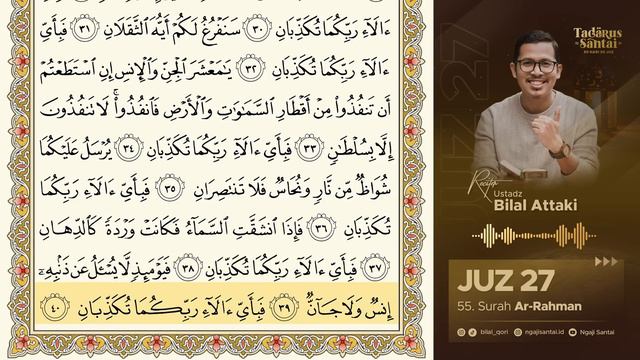 ءَالَآءِ رَبِّكُمَا تُكَذِّبَانِ ٣٠ سَنَفْرُغُ لَكُمْ أَيُّهَ ٱلثَّقَلَانِ ٣١ فَبِأَيِّ
ءَالَآءِ رَبِّكُمَا تُكَذِّبَانِ ٣٢ يَٰمَعْشَرَ ٱلْجِنِّ وَٱلْإِنسِ إِنِ ٱسْتَطَعْتُمْ
أَن تَنفُذُوا۟ مِنْ أَقْطَارِ ٱلسَّمَٰوَٰتِ وَٱلْأَرْضِ فَٱنفُذُوا۟ۚ لَا تَنفُذُونَ
إِلَّا بِسُلْطَٰنٍ ٣٣ فَبِأَيِّ ءَالَآءِ رَبِّكُمَا تُكَذِّبَانِ ٣٤ يُرْسَلُ عَلَيْكُمَا
شُوَاظٌ مِّن نَّارٍ وَنُحَاسٌ فَلَا تَنتَصِرَانِ ٣٥ فَبِأَيِّ ءَالَآءِ رَبِّكُمَا
تُكَذِّبَانِ ٣٦ فَإِذَا ٱنشَقَّتِ ٱلسَّمَآءُ فَكَانَتْ وَرْدَةً كَٱلدِّهَانِ
٣٧ فَبِأَيِّ ءَالَآءِ رَبِّكُمَا تُكَذِّبَانِ ٣٨ فَيَوْمَئِذٍ لَّا يُسْـَٔلُ عَن ذَنۢبِهِۦٓ
إِنسٌ وَلَا جَآنٌّ ٣٩ فَبِأَيِّ ءَالَآءِ رَبِّكُمَا تُكَذِّبَانِ ٤٠
Tadarus
Santai
30 HARI 30 JUZ
JUZ 27
Recite
Ustadz
Bilal Attaki
JUZ 27
55. Surah Ar-Rahman
bilal_qori
ngajisantai.id
Ngaji Santai